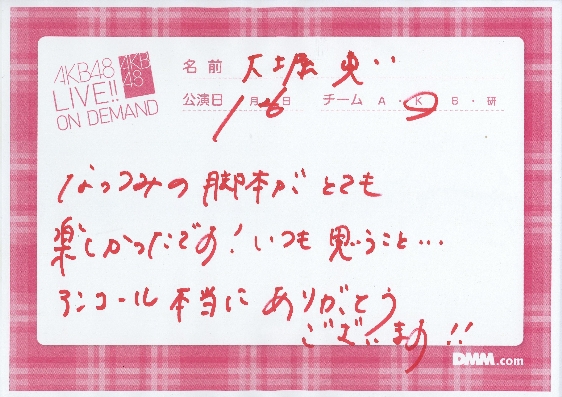 AKB48
LIVE!!
ON DEMAND
AKB
48
名前 大堀 恵
公演日 1月26日 チーム A・K・B・研
なっつみの 脚本が とても
楽しかったです! いつも 思うこと…
アンコール 本当に ありがとう
ございます!!
DMM.com